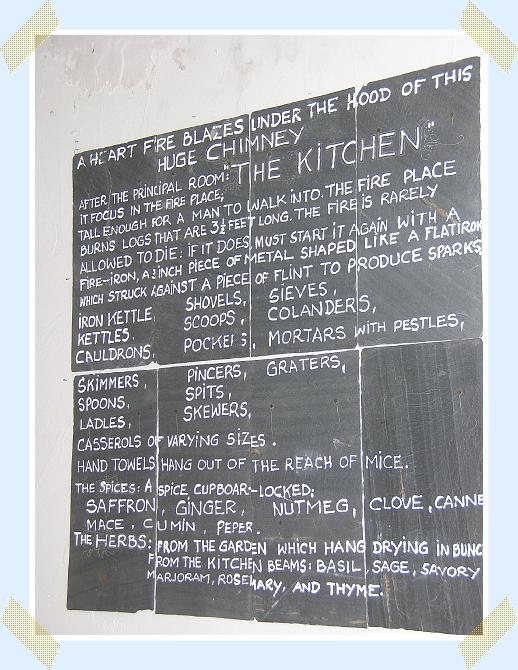 A HEART FIRE BLAZES UNDER THE HOOD OF THIS
HUGE CHIMNEY
"THE KITCHEN"
AFTER THE PRINCIPAL ROOM:
IT FOCUS IN THE FIRE PLACE;
TALL ENOUGH FOR A MAN TO WALK INTO. THE FIRE PLACE
BURNS LOGS THAT ARE 3½ FEET LONG. THE FIRE IS RARELY
ALLOWED TO DIE: IF IT DOES MUST START IT AGAIN WITH A
FIRE-IRON, A INCH PIECE OF METAL SHAPED LIKE A FLATIRON
WHICH STRUCK AGAINST A PIECE OF FLINT TO PRODUCE SPARKS
IRON KETTLE, SHOVELS, SIEVES,
KETTLES, SCOOPS, COLANDERS,
CAULDRONS, MORTARS WITH PESTLES,
SKIMMERS, PINCERS, GRATERS,
SPOONS, SPITS,
LADLES, SKEWERS,
CASSEROLS OF VARYING SIZES.
HAND TOWELS HANG OUT OF THE REACH OF MICE.
THE SPICES: A SPICE CUPBOAR-LOCKED;
SAFFRON, GINGER, NUTMEG, CLOVE, CANNE
MACE, CUMIN, PEPER.
THE HERBS: FROM THE GARDEN WHICH HANG DRYING IN BUNC
FROM THE KITCHEN BEAMS: BASIL, SAGE, SAVORY
MARJORAM, ROSEMARY, AND THYME.